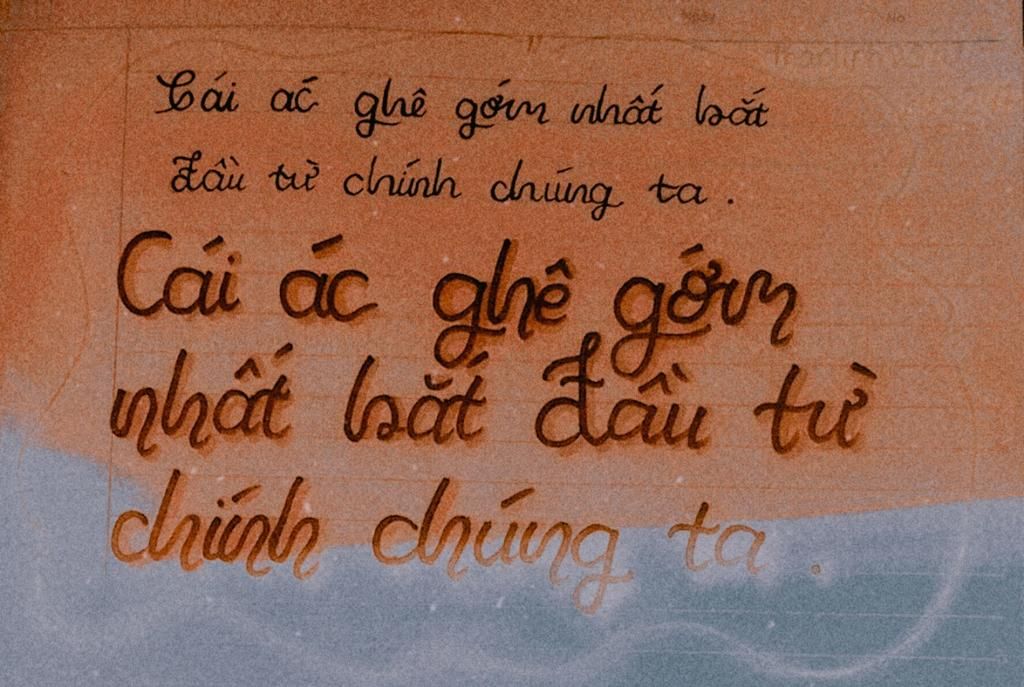 Cái ác ghê gớm nhất bắt
đầu từ chính chúng ta.
Cái ác ghê gớm
nhất bắt đầu từ
chính chúng ta.